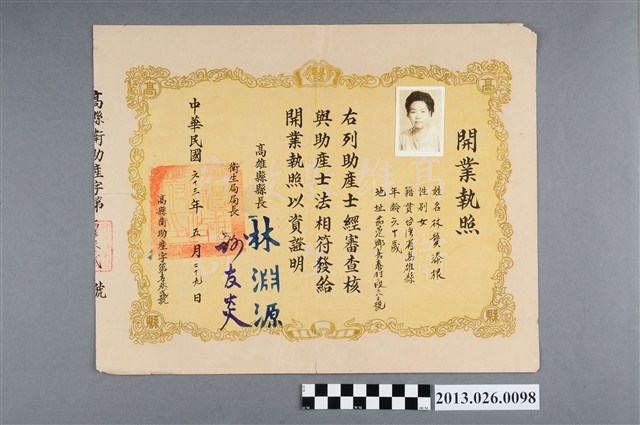 開業執照
姓名 林黃添根
性別 女
籍貫 台灣省高雄縣
年齡 六十歲
右列助產士經審查核
與助產士法相符發給
開業執照以資證明
高雄縣縣長
林淵源
衛生局局長
友炎
中華民國六十三年五月二十九日
高縣衛助產字第
號
高縣衛助產字第
號
高
高
縣
縣
2013.026.0098